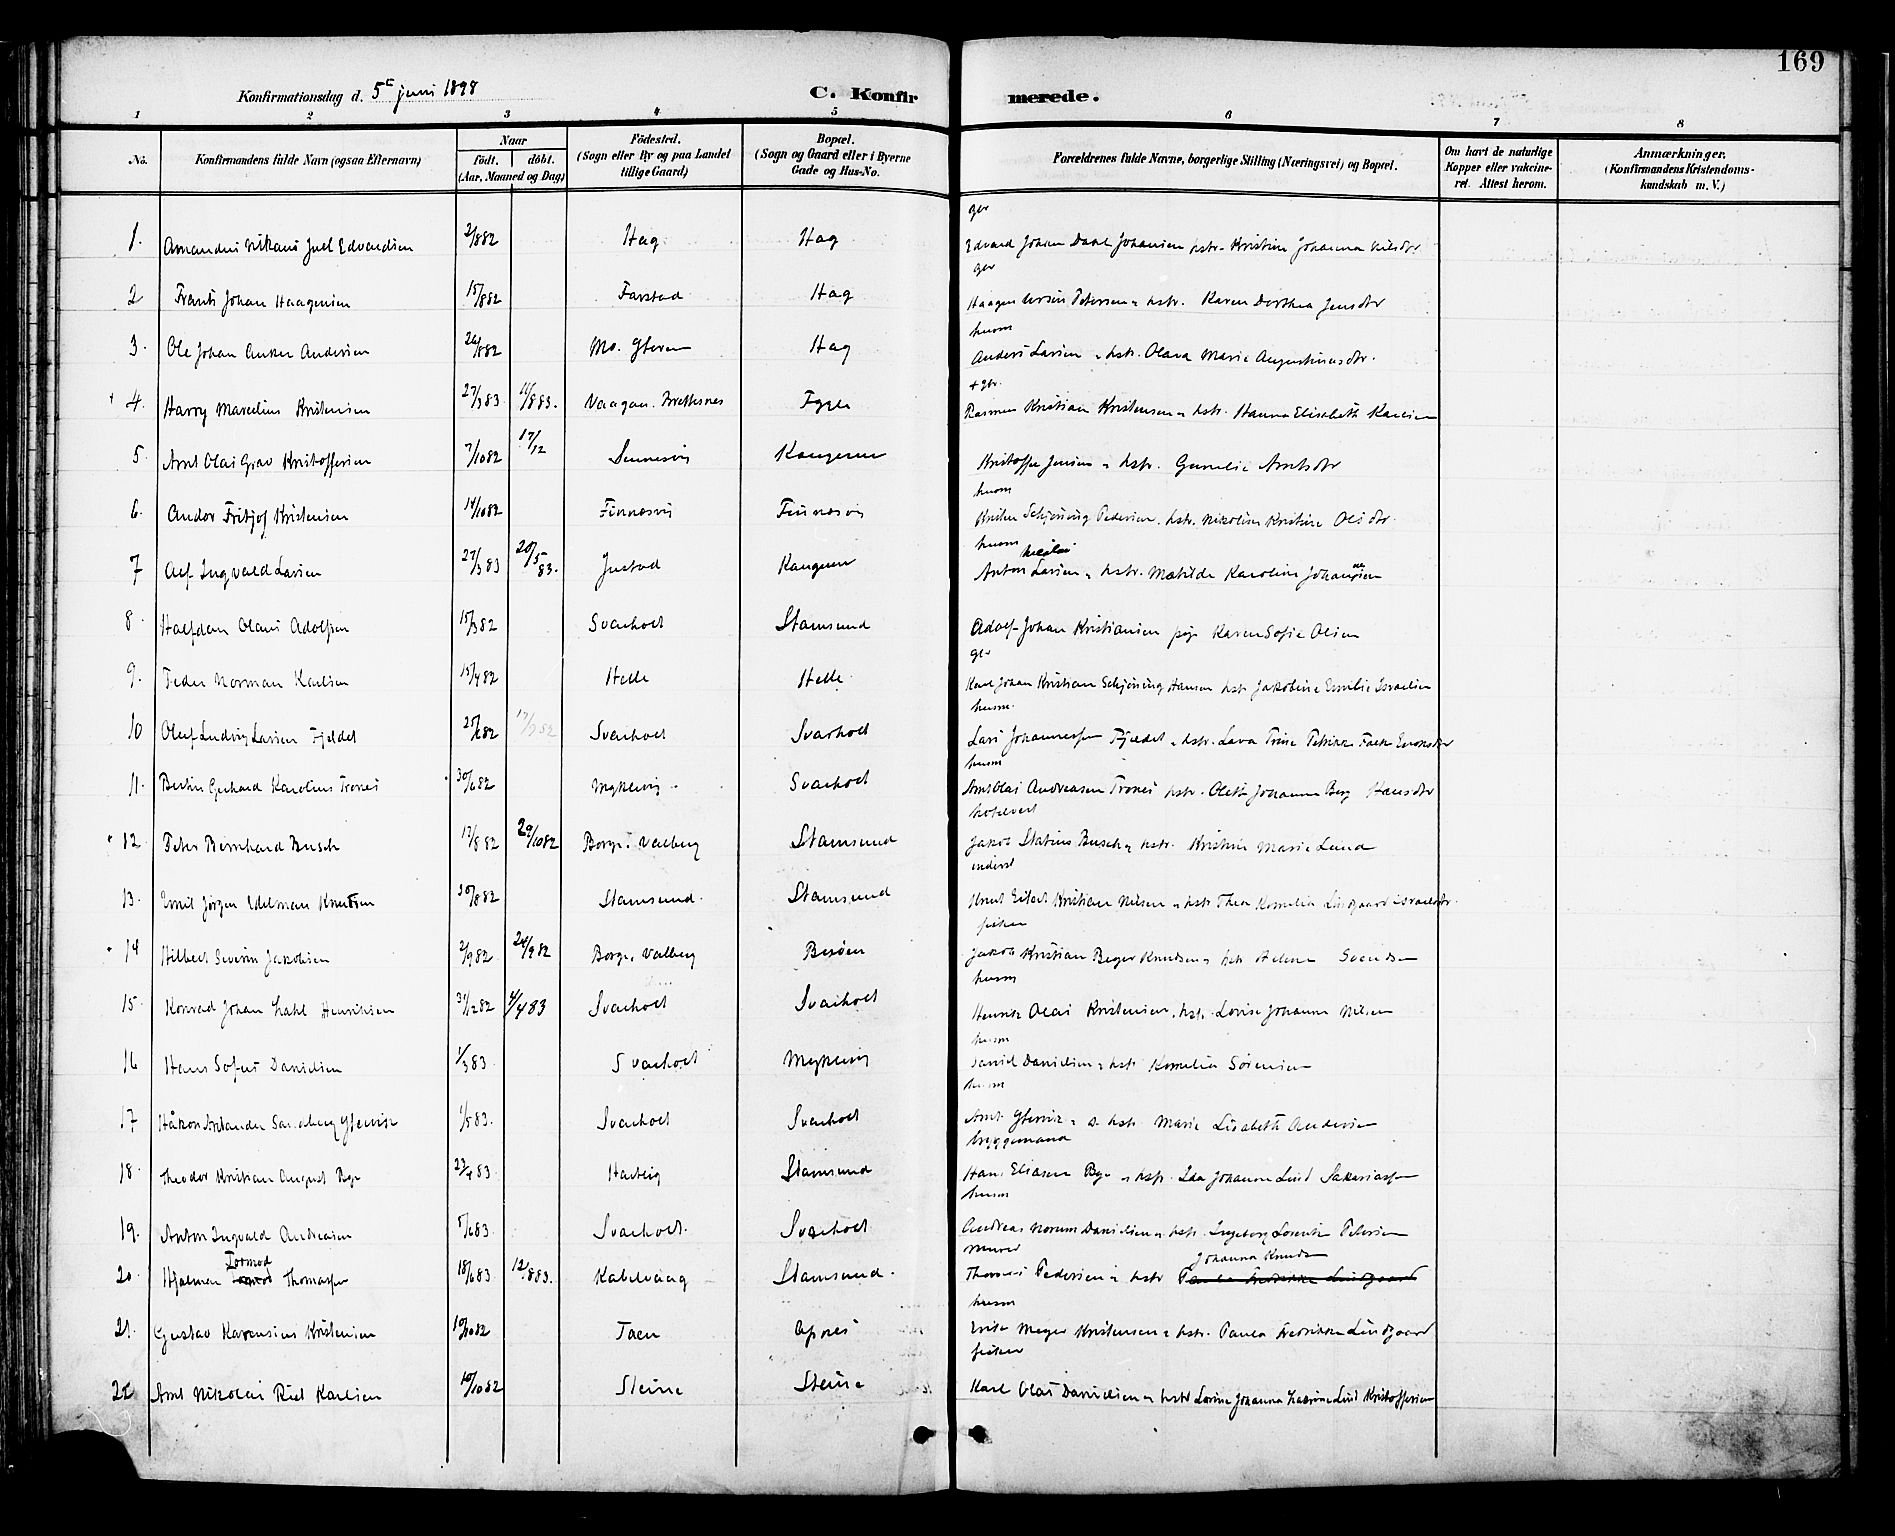 169
Konfirmationsdag d. 5te juni 1898 C. Konfirmerede.
1 2 3 4 5 6 7 8
No. Konfirmandens fulde Navn (ogsaa Efternavn) Naar født. døbt. (Aar, Maaned og Dag) Fødested. (Sogn eller By og paa Landet tillige Gaard) Bopæl. (Sogn og Gaard eller i Byerne Gade og Hus-No. Forældrenes fulde Navne, borgerlige Stilling (Næringsvei) og Bopæl. Om havt de naturlige Kopper eller vakcineret. Attest herom. Anmærkninger. (Konfirmandens Kristendomskundskab m. V.)
gbr
1. Amandus Nikani Juel Edvardsen 2/8 82 Hag Hag Edvard Johan Daal Johansen hstr. Kristine Johanna Nilsdtr
gbr
2 Frants Johan Haagensen 15/8 82 Farstad Hag Haagen Petersen & hstr. Karen Dorthea Jensdtr
husm
3. Ole Johan Anker Andersen 82 Mo. Hag Anders Larsen & hstr. Olava Marie Augustinusdtr.
+ gbr.
4. Harry Marcelius Kristensen 27/3 83 11/8 83. Vaagan. Brettesnes Fygle Rasmus Kristian Kristensen & hstr. Hanna Elisabeth Karlsen
5. Arnt Olai Grav Kristoffersen 7/10 82 17/12 Sennesvig Kangerur Kristoffer Jensen & hstr. Gunelie Arntsdtr
husm
6. Andor Fritjof Kristensen 14/10 82 Finnesvig Finnesvig Kristen Schjøning Pedersen, hstr. Nikoline Kristine Olsdtr.
husm Nicolai
7 Alf Ingvald Larsen 27/3 83 20/5 83. Justad Kangerur Anton Larsen & hstr. Matilde Karoline Johansen
8. Halfdan Olaus Adolfsen 15/3 82 Svarholt Stamsund Adolf Johan Kristiansen pige Karen Sofie Olsen
gbr
9. Peder Norman Karlsen 15/4 82 Helle Helle Karl Johan Kristian Schjøning Hansen hstr Jakobine Emilie Israelsen
husm.
10 Oluf Ludvig Larsen Fjeldet 25/6 82 82 Svarholt Svarholt Lars Johannessen Fjeldet & hstr. Lava Trine Petrikke Falk Enoksdtr
husm
11. Bertin Gerhard Karolius Trones 30/6 82 Myklevig Svarholt Arnt Olai Andreasen Trones hstr. Oletta Johanna Berg Hansdtr
hotelvert
12. Peter Bernhard Busch 17/8 82 29/10 82 Borge. Valberg Stamsund Jakob Statius Busch & hstr. Kristine Marie Lund
inderst
13. Emil Jørgen Edelman Knutsen 30/8 82 Stamsund. Stamsund Knut Eilert Kristian Nilsen & hstr Thea Kornelia Lindgaard Israelsdtr.
fisker
14 Hilbert Severin Jakobsen 2/9 82 24/9 82 Borge. Valberg Jakob Kristian Berger Knudsen & hstr Helene Svendsen
husm
15. Konrad Johan Zahl Henriksen 31/12 82 4/4 83 Svarholt Svarholt Henrik Olai Kristensen, hstr. Lovise Johanna Nilsen
husm
16 Hans Sofus Danielsen 1/3 83 Svarholt Myklevig Daniel Danielsen & hstr Kornelia Sørensen
husm
17 Håkon 1/5 83. Svarholt Svarholt Arnt & hstr Marie Lisabeth Andersen
bryggemand
18. Theodor Kristian August Bye 83 Hartvig Stamsund Hans Eliasen Bye & hstr. Ida Johanna Lind Sakariassen
husm
19. Anton Ingvald Andreasen 5/6 83 Svarholt. Svarholt Andreas Norum Danielsen & hstr. Ingeborg Lorentze Petersen
Tormod murer Johanna Knuds
20. Hjalmar Thomassen 18/6 83 12/8 83. Kabelvaag Stamsund. Thomas Pedersen & hstr
husm
21. Gustav Karensius Kristensen 10/10 82 Taen Apnes Erik Meyer Kristensen & hstr. Paula Fredrikke Lindgaard
fisker
22 Arnt Nikolai Riel Karlsen 10/10 82 Steine Steine Karl Olai Danielsen & hstr Lorine Johanna Lind Kristoffersen